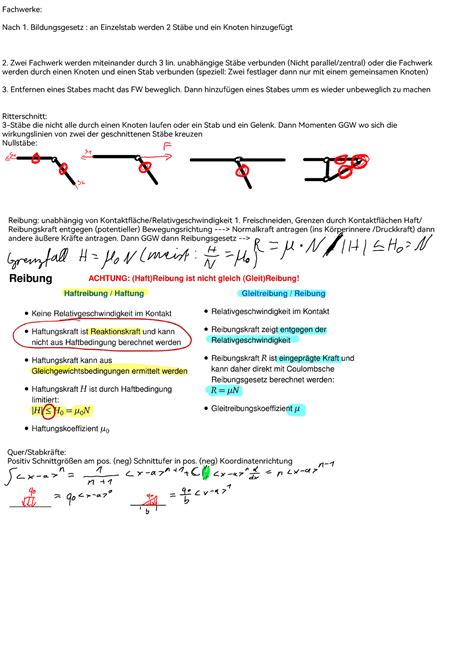 Fachwerke:
Nach 1. Bildungsgesetz : an Einzelstab werden 2 Stäbe und ein Knoten hinzugefügt
2. Zwei Fachwerk werden miteinander durch 3 lin. unabhängige Stäbe verbunden (Nicht parallel/zentral) oder die Fachwerk
werden durch einen Knoten und einen Stab verbunden (speziell: Zwei festlager dann nur mit einem gemeinsamen Knoten)
3. Entfernen eines Stabes macht das FW beweglich. Dann hinzufügen eines Stabes umm es wieder unbeweglich zu machen
Ritterschnitt:
3-Stäbe die nicht alle durch einen Knoten laufen oder ein Stab und ein Gelenk. Dann Momenten GGW wo sich die
wirkungslinien von zwei der geschnittenen Stäbe kreuzen
Nullstäbe:
F
Reibung: unabhängig von Kontaktfläche/Relativgeschwindigkeit 1. Freischneiden, Grenzen durch Kontaktflächen Haft/
Reibungskraft entgegen (potentieller) Bewegungsrichtung ---> Normalkraft antragen (ins Körperinnere /Druckkraft) dann
andere äußere Kräfte antragen. Dann GGW dann Reibungsgesetz -->
R = μ · N / |H| ≤ H₀ = N
Grenzfall H = μ₀ N (meist: H/N = μ₀)
Reibung
ACHTUNG: (Haft)Reibung ist nicht gleich (Gleit)Reibung!
Haftreibung / Haftung
Keine Relativgeschwindigkeit im Kontakt
Haftungskraft ist Reaktionskraft und kann
nicht aus Haftbedingung berechnet werden
Haftungskraft kann aus
Gleichgewichtsbedingungen ermittelt werden
Haftungskraft H ist durch Haftbedingung
limitiert:
|H| ≤ H₀ = μ₀N
Haftungskoeffizient μ₀
Gleitreibung / Reibung
Relativgeschwindigkeit im Kontakt
Reibungskraft zeigt entgegen der
Relativgeschwindigkeit
Reibungskraft R ist eingeprägte Kraft und
kann daher direkt mit Coulombsche
Reibungsgesetz berechnet werden:
R = μN
Gleitreibungskoeffizient μ
Quer/Stabkräfte:
Positiv Schnittgrößen am pos. (neg) Schnittufer in pos. (neg) Koordinatenrichtung
∫<x-a>ⁿ = 1/(n+1) <x-a>ⁿ⁺¹ + C <x-a>ⁿ d/dx = n <x-a>ⁿ⁻¹
q₀ = q₀ <x-a>⁰ q₀ b = q₀/b <x-a>¹